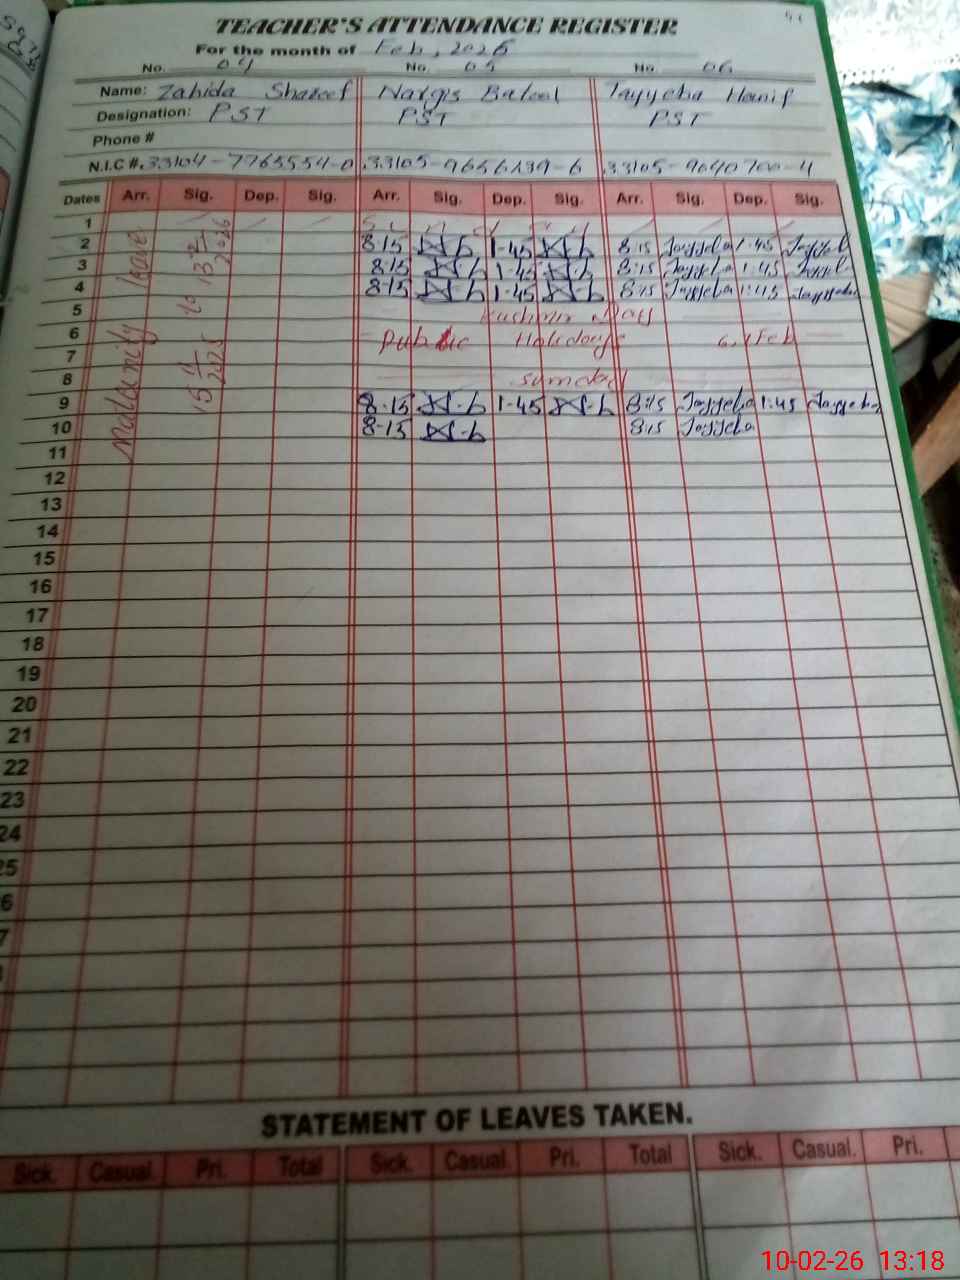 TEACHER'S ATTENDANCE REGISTER
For the month of Feb, 2026
No. 04 No. 05 No. 06
Name: Zahida Shareef Nargis Batool Tayyeba Hanif
Designation: PST PST PST
Phone #
N.I.C #. 33104-7763554-0 33105-9656239-6 33105-9640700-4
Dates Arr. Sig. Dep. Sig. Arr. Sig. Dep. Sig. Arr. Sig. Dep. Sig.
Maternity leave
15 11 2025 to 13 2 2026
1 S u n d a y
2 8:15 1-45 8:15 Tayyeba 1:45 Tayyeba
3 8:15 1-45 8:15 Tayyeba 1:45
4 8:15 1-45 8:15 Tayyeba 1:45 Tayyeba
5 Kashmir Day
6 Public Holidays 6,7 Feb
7
8 sunday
9 8-15 1-45 8:15 Tayyeba 1:45 Tayyeba
10 8-15 8:15 Tayyeba
11
12
13
14
15
16
17
18
19
20
21
22
23
24
25
6
7
STATEMENT OF LEAVES TAKEN.
Sick. Casual. Pri. Total Sick. Casual. Pri. Total Sick. Casual. Pri.
10-02-26 13:18